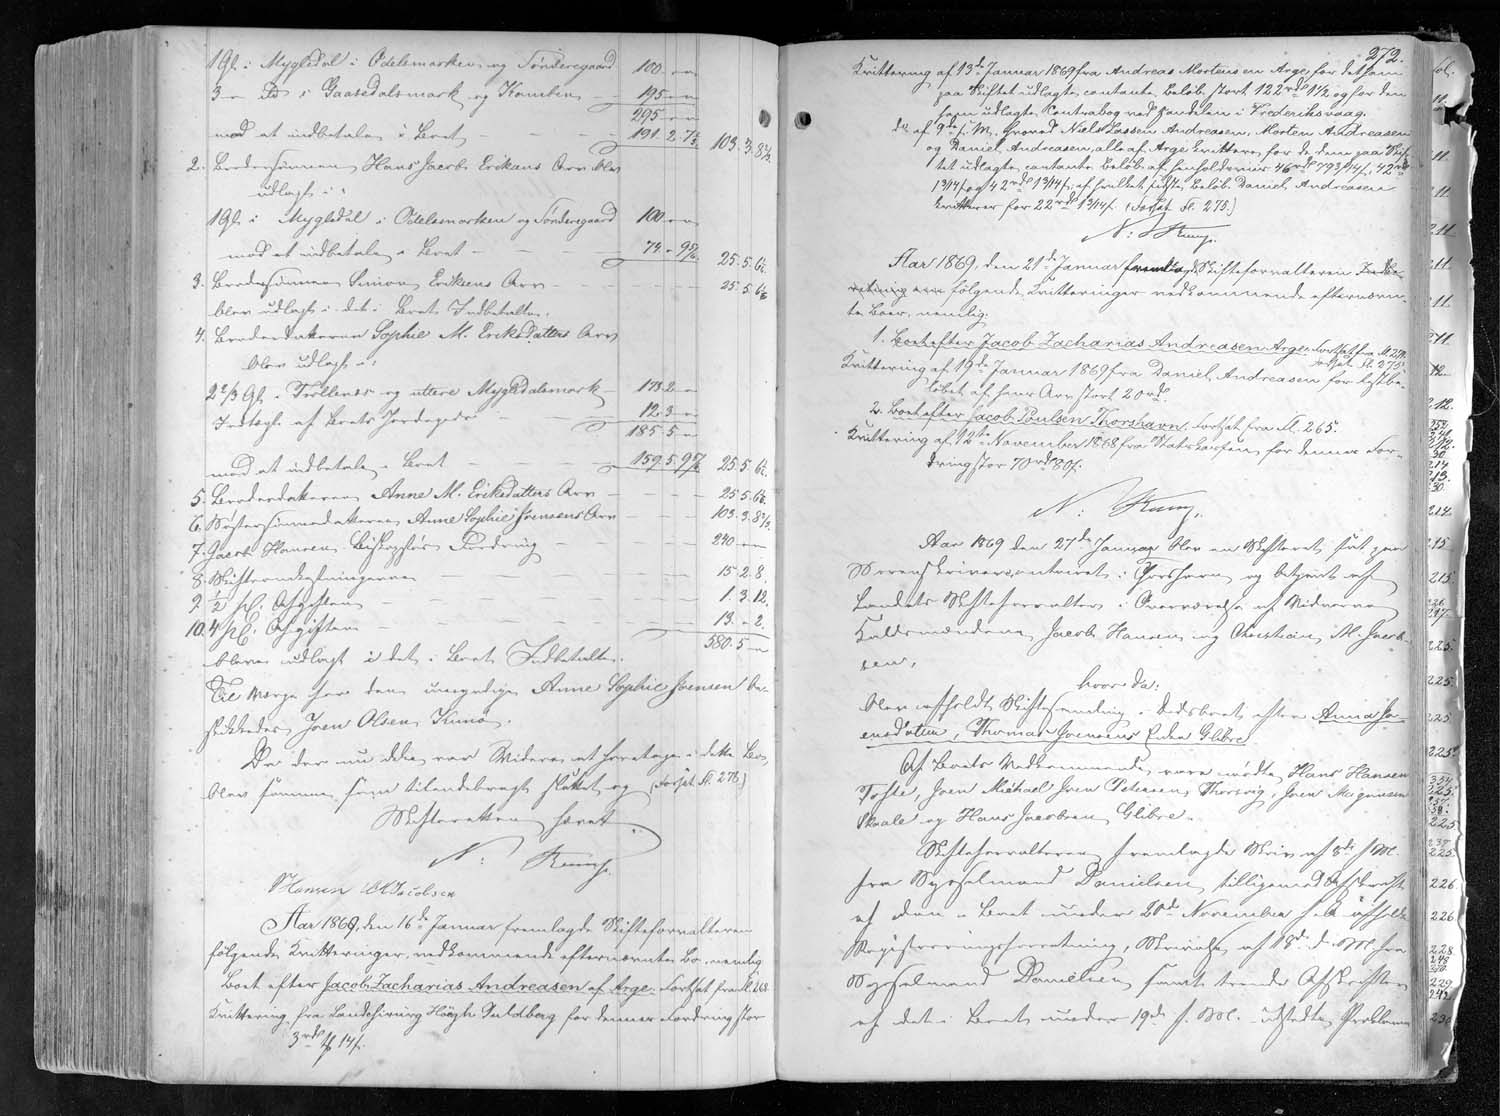 1 Gl. i Mygledal i Odelsmarken og Sønderegaard 100 " "
3 – Do i Gaasedalsmark og Kamben 195 " "
295 " "
mod at indbetale i Boet 191. 2. 7⅓ 103. 3. 8⅔
2. Brodersønnen Hans Jacob Eriksens Arv blev
udlagt i:
1 Gl. i Mygledal i Odelsmarken og Sønderegaard 100 " "
mod at indbetale i Boet 74 " 9 25. 5. 6
3. Brodersønnen Simon Eriksens Arv 25. 5. 6
blev udlagt i det i Boet Indbetalte.
4. Broderdatteren Sophie M. Eriksdatters Arv
blev udlagt i:
2⅔ Gl. i Trøllenes og uttere Mygledalsmark 173. 2 "
Indtægt af Boets Jordegods 12. 3 "
185. 5 "
mod at indbetale i Boet 159. 5. 9 25. 5. 6
5. Broderdatteren Anne M. Eriksdatters Arv 25. 5. 6
6. Søstersønnedatteren Anne Sophie Joensens Arv 103. 3. 8⅔
7. Jacob Hansen Biskopstøs Fordring 240 " "
8. Skifteomkostningerne 15. 2. 8.
9. ½ pC. Afgiften 1. 3. 12.
10. 4 pC. Afgiften 13. " 2.
580. 5 "
bleve udlagt i det i Boet Indbetalte.
Til Værge for den umyndige Anne Sophie Joensen be-
skikkedes Joen Olsen Kunø.
Da der nu ikke var Videre at foretage i dette Bo,
blev samme som tilendebragt sluttet og (Fortsat fl. 276)
Skifteretten hævet.
N: Kruse.
JHansen CMJacobsen
Aar 1869, den 16de Januar fremlagde Skifteforvalteren
følgende Kvitteringer, vedkommende efternævnte Bo, nemlig
Boet efter Jacob Zacharias Andreasen af Arge. Fortsat fra fl. 268.
Kvittering fra Landchirurg Høegh Guldberg for dennes Fordring stor
3 rdl. 14 ſ.
272.
Kvittering af 13de Januar 1869 fra Andreas Mortensen Arge for det ham
paa Skiftet udlagte contante Beløb, stort 122 rdl. 1½ og for den
ham udlagte Contrabog ved Handelen i Frederiksvaag.
do af 9de s. M., hvorved Niels Lassen Andreasen, Morten Andreasen
og Daniel Andreasen, alle af Arge kvitterer for de dem paa Skif-
tet udlagte contante Beløb af henholdsviis 46 rdl. 79 3/14 ſ., 42 rdl.
13/14 ſ. og 42 rdl. 13/14 ſ. af hvilket sidste Beløb Daniel Andreasen
kvitterer for 22 rdl. 13/14 ſ. (Fortsat fl. 275.)
N: Kruse.
Aar 1869, den 21de Januar fremlagde Skifteforvalteren
følgende Kvitteringer vedkommende efternævn-
te Boer, nemlig:
1. Boet efter Jacob Zacharias Andreasen Arge. Fortsat fra fl. 271.
Fortsat fl. 275.
Kvittering af 19de Januar 1869 fra Daniel Andreasen for Restbe-
løbet af hans Arv stort 20 rdl.
2. Boet efter Jacob Poulsen Thorshavn. Fortsat fra fl. 265.
Kvittering af 12te November 1868 fra Statskassen for dennes For-
dring stor 70 rdl. 80 ſ.
N: Kruse.
Aar 1869 den 27de Januar blev en Skifteret sat paa
Sorenskrivercontoiret i Thorshavn og betjent af
Landets Skifteforvalter i Overværelse af Vidnerne
Kaldsmændene Jacob Hansen og Christian M. Jacob-
sen,
hvorda:
blev afholdt Skiftesamling i Dødsboet efter Anna Jo-
ensdatter, Thomas Joensens Enke Glibre.
Af Boets Vedkommende vare mødte Hans Hansen
Tofte, Joen Michael Joen Petersen Thorsvig, Joen Magnussen
Skaale og Hans Jacobsen Glibre.
Skifteforvalteren fremlagde Skriv. af 8de s. M.
fra Sysselmand Danielsen tilligemed Udskrift
af den i Boet under 20de November f. A. afholdte
Registreringsforretning, Skrivelse af 18de d. M. fra
Sysselmand Danielsen samt trende Afskrifter
af det i Boet under 19de f. M. udstedte Proklama